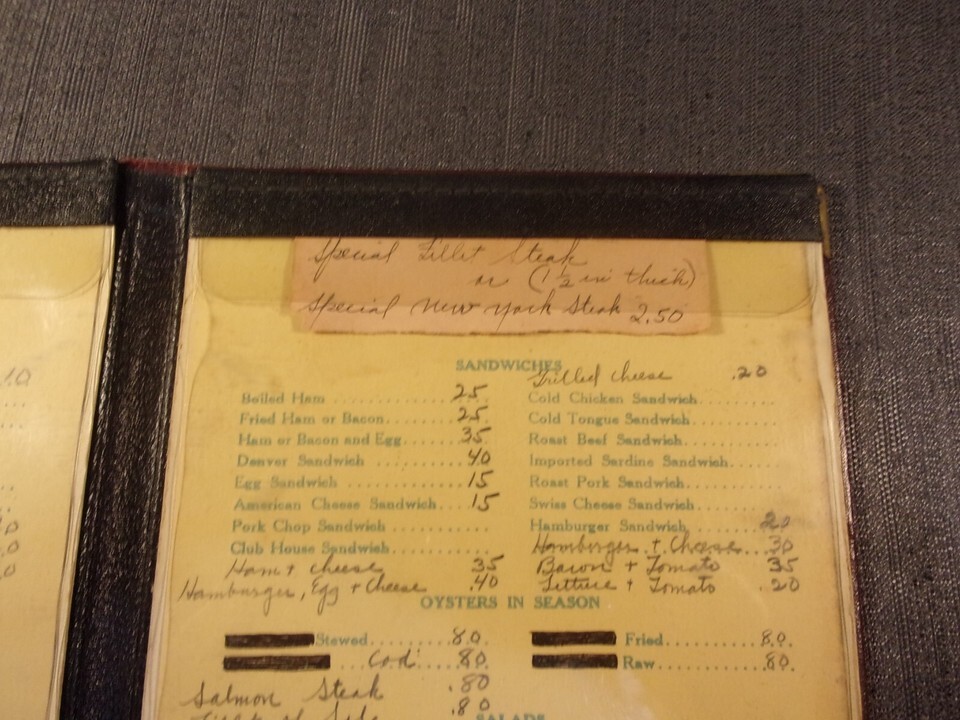 Special Fillet Steak
or (1 1/2 in thick)
Special New York Steak 2.50
SANDWICHES
Boiled Ham .......... 25
Fried Ham or Bacon...... 25
Ham or Bacon and Egg...... 35
Denver Sandwich .......... 40
Egg Sandwich .......... 15
American Cheese Sandwich... 15
Pork Chop Sandwich ..........
Club House Sandwich..........
Ham + cheese 35
Hamburger, Egg + Cheese .40
Grilled cheese .20
Cold Chicken Sandwich..........
Cold Tongue Sandwich..........
Roast Beef Sandwich..........
Imported Sardine Sandwich......
Roast Pork Sandwich..........
Swiss Cheese Sandwich..........
Hamburger Sandwich.......... 20
Hamburger + Cheese 30
Bacon + Tomato 35
Lettuce + Tomato .20
OYSTERS IN SEASON
Stewed.......... 80
.... Cod. .80
Salmon Steak .80
.80
Fried.......... 80
Raw.......... 80
SALADS
10